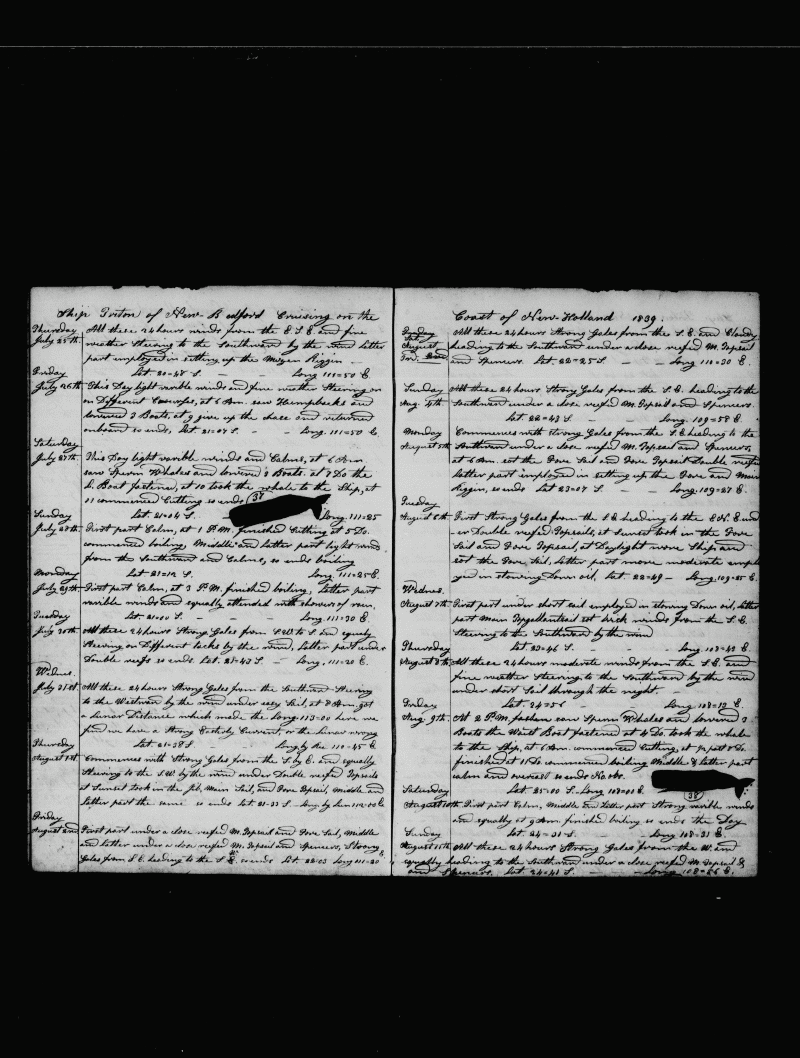 Ship Triton of New Bedford Cruising on the
Thursday All these 24 hours winds from the E.S.E and fine
July 25th weather Steering to the Southward by the wind latter
part employed in setting up the Mizen Riggin
Friday Lat 20=48 S. - - Long 111=50 E.
July 26th This Day light varible winds and fine wether Steering on
on Different Courses, at 6 Am. saw Humpbacks and
lowered 3 Boats, at 9 give up the chace and returned
onboard so ends, Lat 21=07 S. - - Long. 111=50 E.
Saturday
July 27th This Day light varible winds and Calms, at 6 Am
saw Sperm Whales and lowered 3 Boats. at 7 Do the
L. Boat fastened, at 10 took the whale to the Ship, at
11 commenced Cutting so ends 37
Sunday Lat. 21=04 S. Long. 111=25
July 28th First part Calm, at 1 P.M. finished Cutting at 5 Do.
commenced boiling, Middle and latter part light winds
from the Southward and Calms, so ends boiling
Monday Lat 21=12 S. Long. 111=25 E.
July 29th First part Calm, at 3 P.M. finished boiling, latter part
varible winds and equally attended with showers of rain,
Tuesday Lat. 21=00 S. - - Long. 111=30 E.
July 30th All these 24 hours Strong Gales from to and equely
Steering on Different tacks by the wind, latter part under
Double reefs so ends Lat. 21=43 S. - Long. 111=20 E.
Wednes.
July 31st All these 24 hours Strong Gales from the Southward Steering
to the Westward by the wind under easy Sail, at got
a Lunar Distance which made the Long. 113=00 here we
find we have a Strong Easterly Current, or the Lunar wrong
Thursday Lat 21=38 S. Long by 110=45 E.
August 1st Commences with Strong Gales from the S. by E. and equally
Steering to the S.W. by the wind under Double reefed Topsails
at Sunset took in the Jib, Main Sail, and Fore Topsail, middle and
latter part the same so ends Lat 21=33 S. Long by Lun 112=00 E
Friday
August 2nd First part under a close reefed M. Topsail and Fore Sail, Middle
and latter under a close reefed M. Topsail and Spencers, Strong
Gales from S.E. heading to the S. so ends Lat. 22=03 Long 111=20
Coast of New Holland 1839.
All these 24 hours Strong Gales from the S.E. and Cloudy
August heading to the Southward under a close reefed M. Topsail
and Spencers. Lat 22=25 S. - - Long 110=30 E.
Sunday All these 24 hours Strong Gales from the S.E. heading to the
Aug. 4th Southward under a close reefed M. Topsail and Spencers.
Lat 22=43 S. - Long. 109=58 E.
Monday Commences with strong Gales from the S.E. heading to the
August 5th Southward under a close reefed M. Topsail and Spencers,
at 6 Am. set the Fore Sail and Fore Topsail Double reefed
latter part employed in setting up the Fore and Main
Riggin, so ends Lat 23=07 S. - Long. 109=27 E.
Tuesday
August 6th First Strong Gales from the S.E. heading to the E.N.E und
er Double reefed Topsails, at Sunset took in the Fore
Sail and Fore Topsail, at Daylight wore Ship, and
set the Fore Sail, latter part more moderate emplo
yed in stowing Down oil, Lat 22=49 - Long. 109=25 E.
Wednes.
August 7th First part under short sail employed in stowing Down oil, latter
part Main Topgallantsail set brick winds from the S.E.
Steering to the Southward by the wind
Thursday Lat 23=46 S. - Long. 108=43 E.
August 8th All these 24 hours moderate winds from the S.E. and
fine weather Steering to the Southward by the wind
under short Sail through the night. -
Friday Lat 24=56 - Long 108=12 E.
Aug. 9th. At 2 P.M. saw Sperm Whales and lowered 3
Boats the Waist Boat fastened at 4 Do. took the whale
to the Ship, at 6 Am. commenced Cutting, at
finished at 11 Do commenced boiling Middle & latter part
calm and overcast so ends
Saturday Lat. 25=00 S. Long 108=00 E.
38
August 10th First part Calm, Middle and latter part Strong varible winds
and equally at 9 Am. finished boiling so ends the Day
Sunday Lat. 24=31 S. - Long 108=31 E.
August 11th All these 24 hours Strong Gales from the W. and
equally heading to the Southward under a close reefed M. Topsail &
and Spencers. Lat. 24=41 S. - - Long 108=56 E.